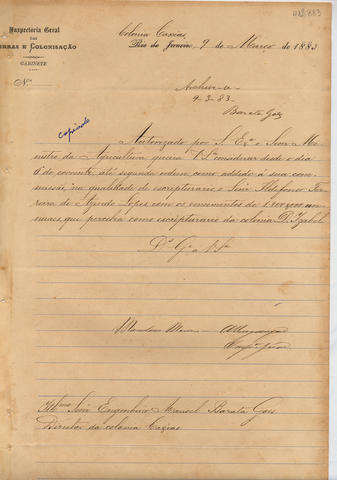 Inspectoria Geral
DAS
TERRAS E COLONISAÇÃO
GABINETE
Nº
Colonia Caxias,
Rio de Janeiro, 9 de Março de 1883
Archive-se
9-3-83-
Barata Goés
copiado
Autorizado por S. Exª o Senr Mi-
nistro da Agricultura queira V.S. considerar desde o dia
6 do corrente até segunda ordem como addido á sua com-
missão, na qualidade de escripturario o Luiz Ildefonso Fer-
reira de Azevedo Lopes com os vencimentos de 1.800$000 an-
nuaes que percebia como escripturario da colonia D. Izabel
Ds Ge a V. Sª
Illmo Snr Engenheiro Manoel Barata Goés
Director da colonia Caxias